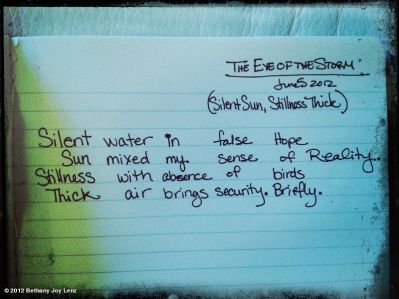 THE EYE OF THE STORM.
June 5 2012
(Silent Sun, Stillness Thick)
Silent water in false Hope
Sun mixed my sense of Reality..
Stillness with absence of birds
Thick air brings security. Briefly.
© 2012 Bethany Joy Lenz